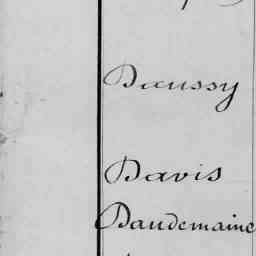 Daussy
Davis
Daudemaine